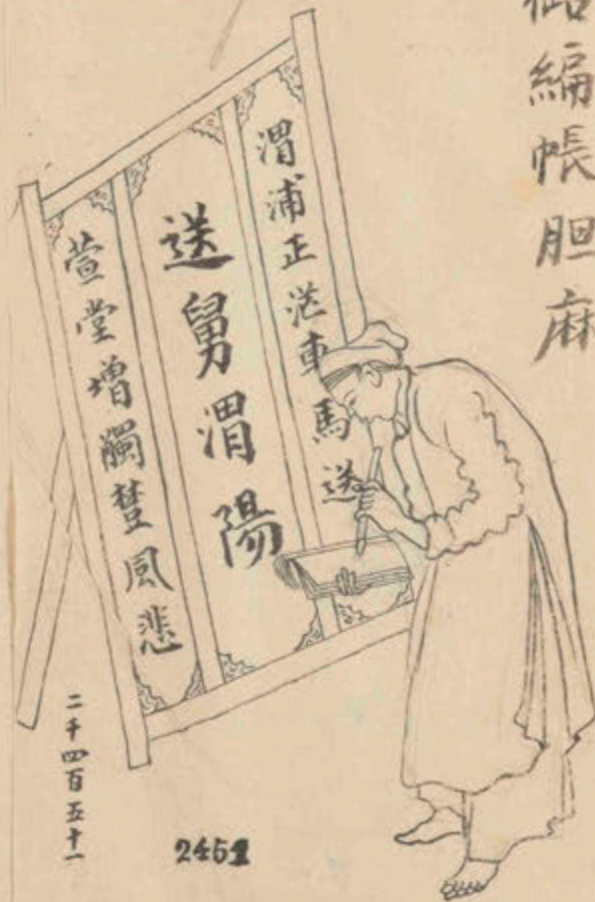 編帳胆麻
渭浦正茫車馬送
送舅渭陽
萱堂增觸楚風悲
二千四百五十一
2451